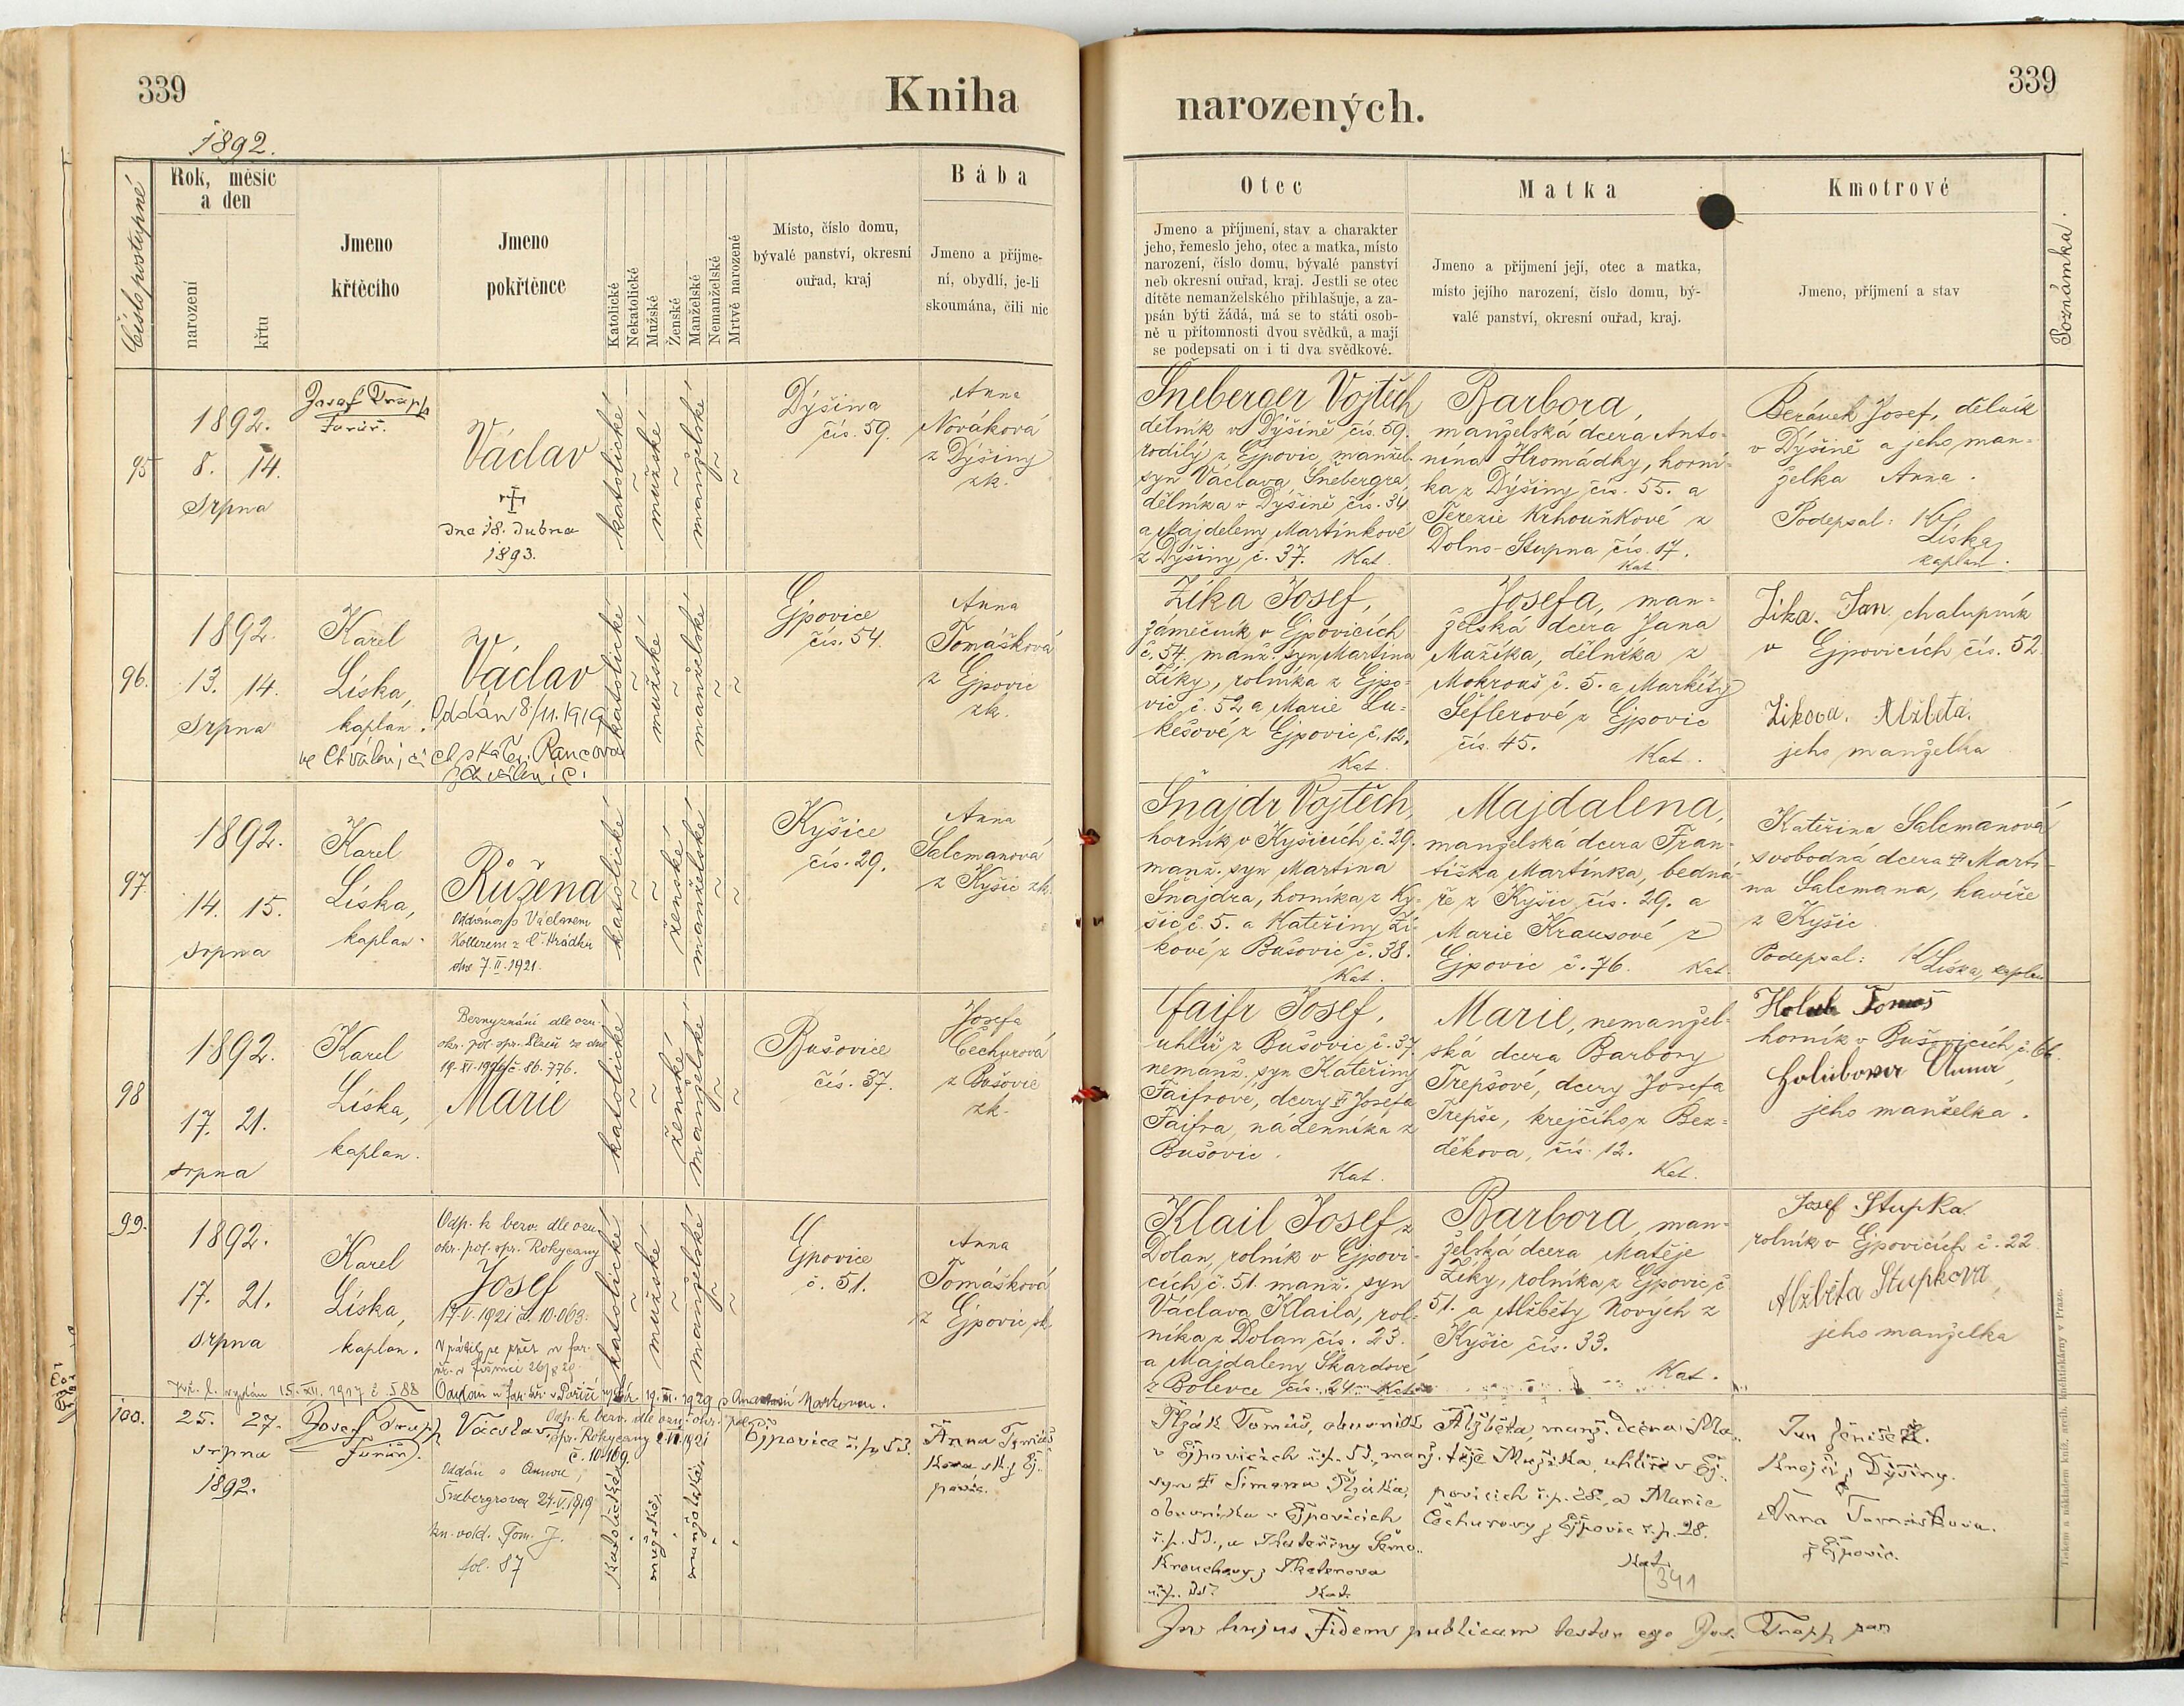 339
Kniha
1892.
Číslo postupné
Rok, měsíc
a den
narození
křtu
Jmeno
křtěcího
Jmeno
pokřtěnce
Katolické
Nekatolické
Mužské
Ženské
Manželské
Nemanželské
Mrtvě narozené
Místo, číslo domu,
bývalé panství, okresní
ouřad, kraj
Bába
Jmeno a příjme-
ní, obydlí, je-li
skoumána, čili nic
95
1892.
8. 14.
srpna
Josef Trapp
Farář.
Václav
dne 18. dubna
1893.
katolické
mužské
manželské
Dýšina
čís. 59.
Anna
Nováková
z Dýšiny
zk.
96.
1892.
13. 14.
srpna
Karel
Líska,
kaplan.
Václav
Oddán 8/11.1919
ve Chválenicích s Kateř. Rancová
z Chválenic.
katolické
mužské
manželské
Ejpovice
čís. 54.
Anna
Tomášková
z Ejpovic
zk.
97.
1892.
14. 15.
srpna
Karel
Líska,
kaplan.
Růžena
Oddána s Václavem
Kotterem z Č. Hrádku
dne 7.II.1921.
katolické
ženské
manželské
Kyšice
čís. 29.
Anna
Salcmanová
z Kyšic zk.
98
1892.
17. 21.
srpna
Karel
Líska,
kaplan.
Bezvyznání dle ozn.
okr. pol. spr. Plzeň ze dne
č. 86.776.
Marie
katolické
ženské
manželské
Bušovice
čís. 37.
Josefa
Čechurová
z Bušovic
zk.
99.
1892.
17. 21.
srpna
Karel
Líska,
kaplan.
Odp. k bezv. dle ozn.
okr. pol. spr. Rokycany
Josef
17.V.1921 č. 10.063.
křt. l. vydán 15.XII.1917 č. 588
katolické
mužské
manželské
Ejpovice
č. 51.
Anna
Tomášková
z Ejpovic zk.
100.
25. 27.
srpna
1892.
Josef Trapp
Farář.
Václav
Odp. k bezv. dle ozn. okr. pol.
spr. Rokycany
č. 10.109.
Oddán s Annou
Šnebergrovou 24.V.1919
kn. odd. Tom. J.
fol. 87
katolické
mužské
manželské
Ejpovice č.p. 53.
Anna Tomáš
ková zk. z Ej-
povic.
339
narozených.
Otec
Jmeno a příjmení, stav a charakter
jeho, řemeslo jeho, otec a matka, místo
narození, číslo domu, bývalé panství
neb okresní ouřad, kraj. Jestli se otec
dítěte nemanželského přihlašuje, a za-
psán býti žádá, má se to státi osob-
ně u přítomnosti dvou svědků, a mají
se podepsati on i ti dva svědkové.
Matka
Jmeno a příjmení její, otec a matka,
místo jejího narození, číslo domu, bý-
valé panství, okresní ouřad, kraj.
Kmotrové
Jmeno, příjmení a stav
Poznámka.
Šneberger Vojtěch
dělník v Dýšině čís. 59.
rodilý z Ejpovic, manžel.
syn Václava Šnebergra,
dělníka v Dýšině čís. 34
a Majdeleny Martínkové
z Dýšiny č. 37. Kat.
Barbora,
manželská dcera Anto-
nína Hromádky, horní-
ka z Dýšiny čís. 55. a
Terezie Krhouňkové z
Dolno-Stupna čís. 17.
Kat.
Beránek Josef, dělník
v Dýšině a jeho man-
želka Anna.
Podepsal: K Líska,
kaplan.
Zíka Josef,
zámečník v Ejpovicích
č. 54. manž. syn Martina
Zíky, rolníka z Ejpo-
vic č. 52 a Marie Lu-
kešové z Ejpovic č. 12.
Kat.
Josefa, man-
želská dcera Jana
Mažíka, dělníka z
Mokrouš č. 5. a Markéty
Šeflerové z Ejpovic
čís. 45. Kat.
Zíka. Jan, chalupník
v Ejpovicích čís. 52.
Zikova. Alžběta.
jeho manželka
Šnajdr Vojtěch,
horník v Kyšicích č. 29.
manž. syn Martina
Šnajdra, horníka z Ky-
šic č. 5. a Kateřiny Zí-
kové z Bušovic č. 38.
Kat.
Majdalena,
manželská dcera Fran-
tiška Martínka, bedná-
ře z Kyšic čís. 29. a
Marie Krausové z
Ejpovic č. 76. Kat.
Kateřina Salcmanová
svobodná dcera Marti-
na Salcmana, havíře
z Kyšic
Podepsal: K Líska, kaplan
Faifr Josef,
uhlíř z Bušovic č. 37.
nemanž. syn Kateřiny
Faifrové, dcery Josefa
Faifra, nádenníka z
Bušovic.
Kat.
Marie, nemanžel-
ská dcera Barbory
Trepšové, dcery Josefa
Trepše, krejčího z Bez-
děkova, čís. 12.
Kat.
Holub Tomáš
horník v Bušovicích č. 66.
Holubova Anna,
jeho manželka.
Klail Josef z
Dolan, rolník v Ejpovi-
cích č. 51. manž. syn
Václava Klaila, rol-
níka z Dolan čís. 23.
a Majdaleny Škardové
z Bolevce čís. 24. Kat.
Barbora, man-
želská dcera Matěje
Zíky, rolníka z Ejpovic č.
51. a Alžběty Nových z
Kyšic čís. 33.
Kat.
Josef Stupka
rolník v Ejpovicích č. 22
Alžběta Stupkova,
jeho manželka
Tomáš, obuvník
v Ejpovicích č.p. 53, manž.
syn Šimona
obuvníka v Ejpovicích
č.p. 53., a Kateřiny
Kat.
Alžběta, manž. dcera Ma-
těje Mužíka, uhlíře v Ej-
povicích č.p. 28., a Marie
Čechurovy z Ejpovic č.p. 28.
Kat.
341
Jan Jeníšek.
Krejčí, z Dýšiny.
Anna Tomášková.
z Ejpovic.
In hujus Fidem publicam testor ego Jos. Trapp par.
Tiskem a nákladem kníž. arcib. knihtiskárny v Praze.